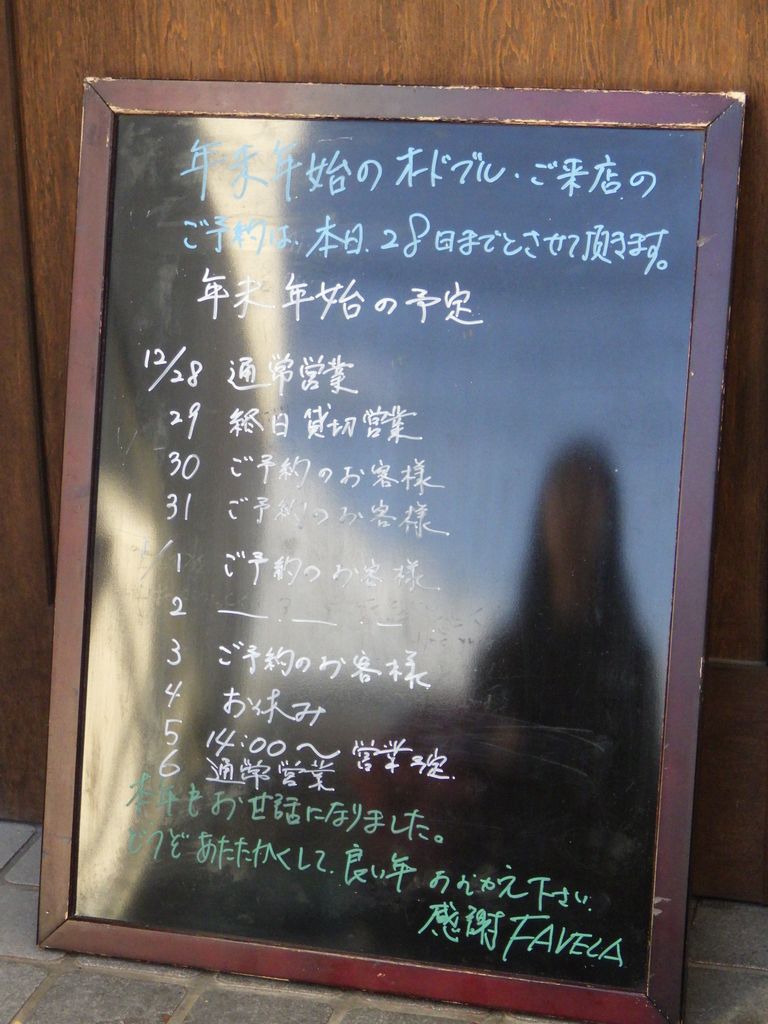 年末年始のオードブル・ご来店の
ご予約は、本日、28日までとさせて頂きます。
年末年始の予定
12/28 通常営業
29 終日貸切営業
30 ご予約のお客様
31 ご予約のお客様
1/1 ご予約のお客様
2 ー . ー . ー
3 ご予約のお客様
4 お休み
5 14:00〜営業予定
6 通常営業
本年もお世話になりました。
どうぞあたたかくして、良い年おむかえ下さい
感謝 FAVELA